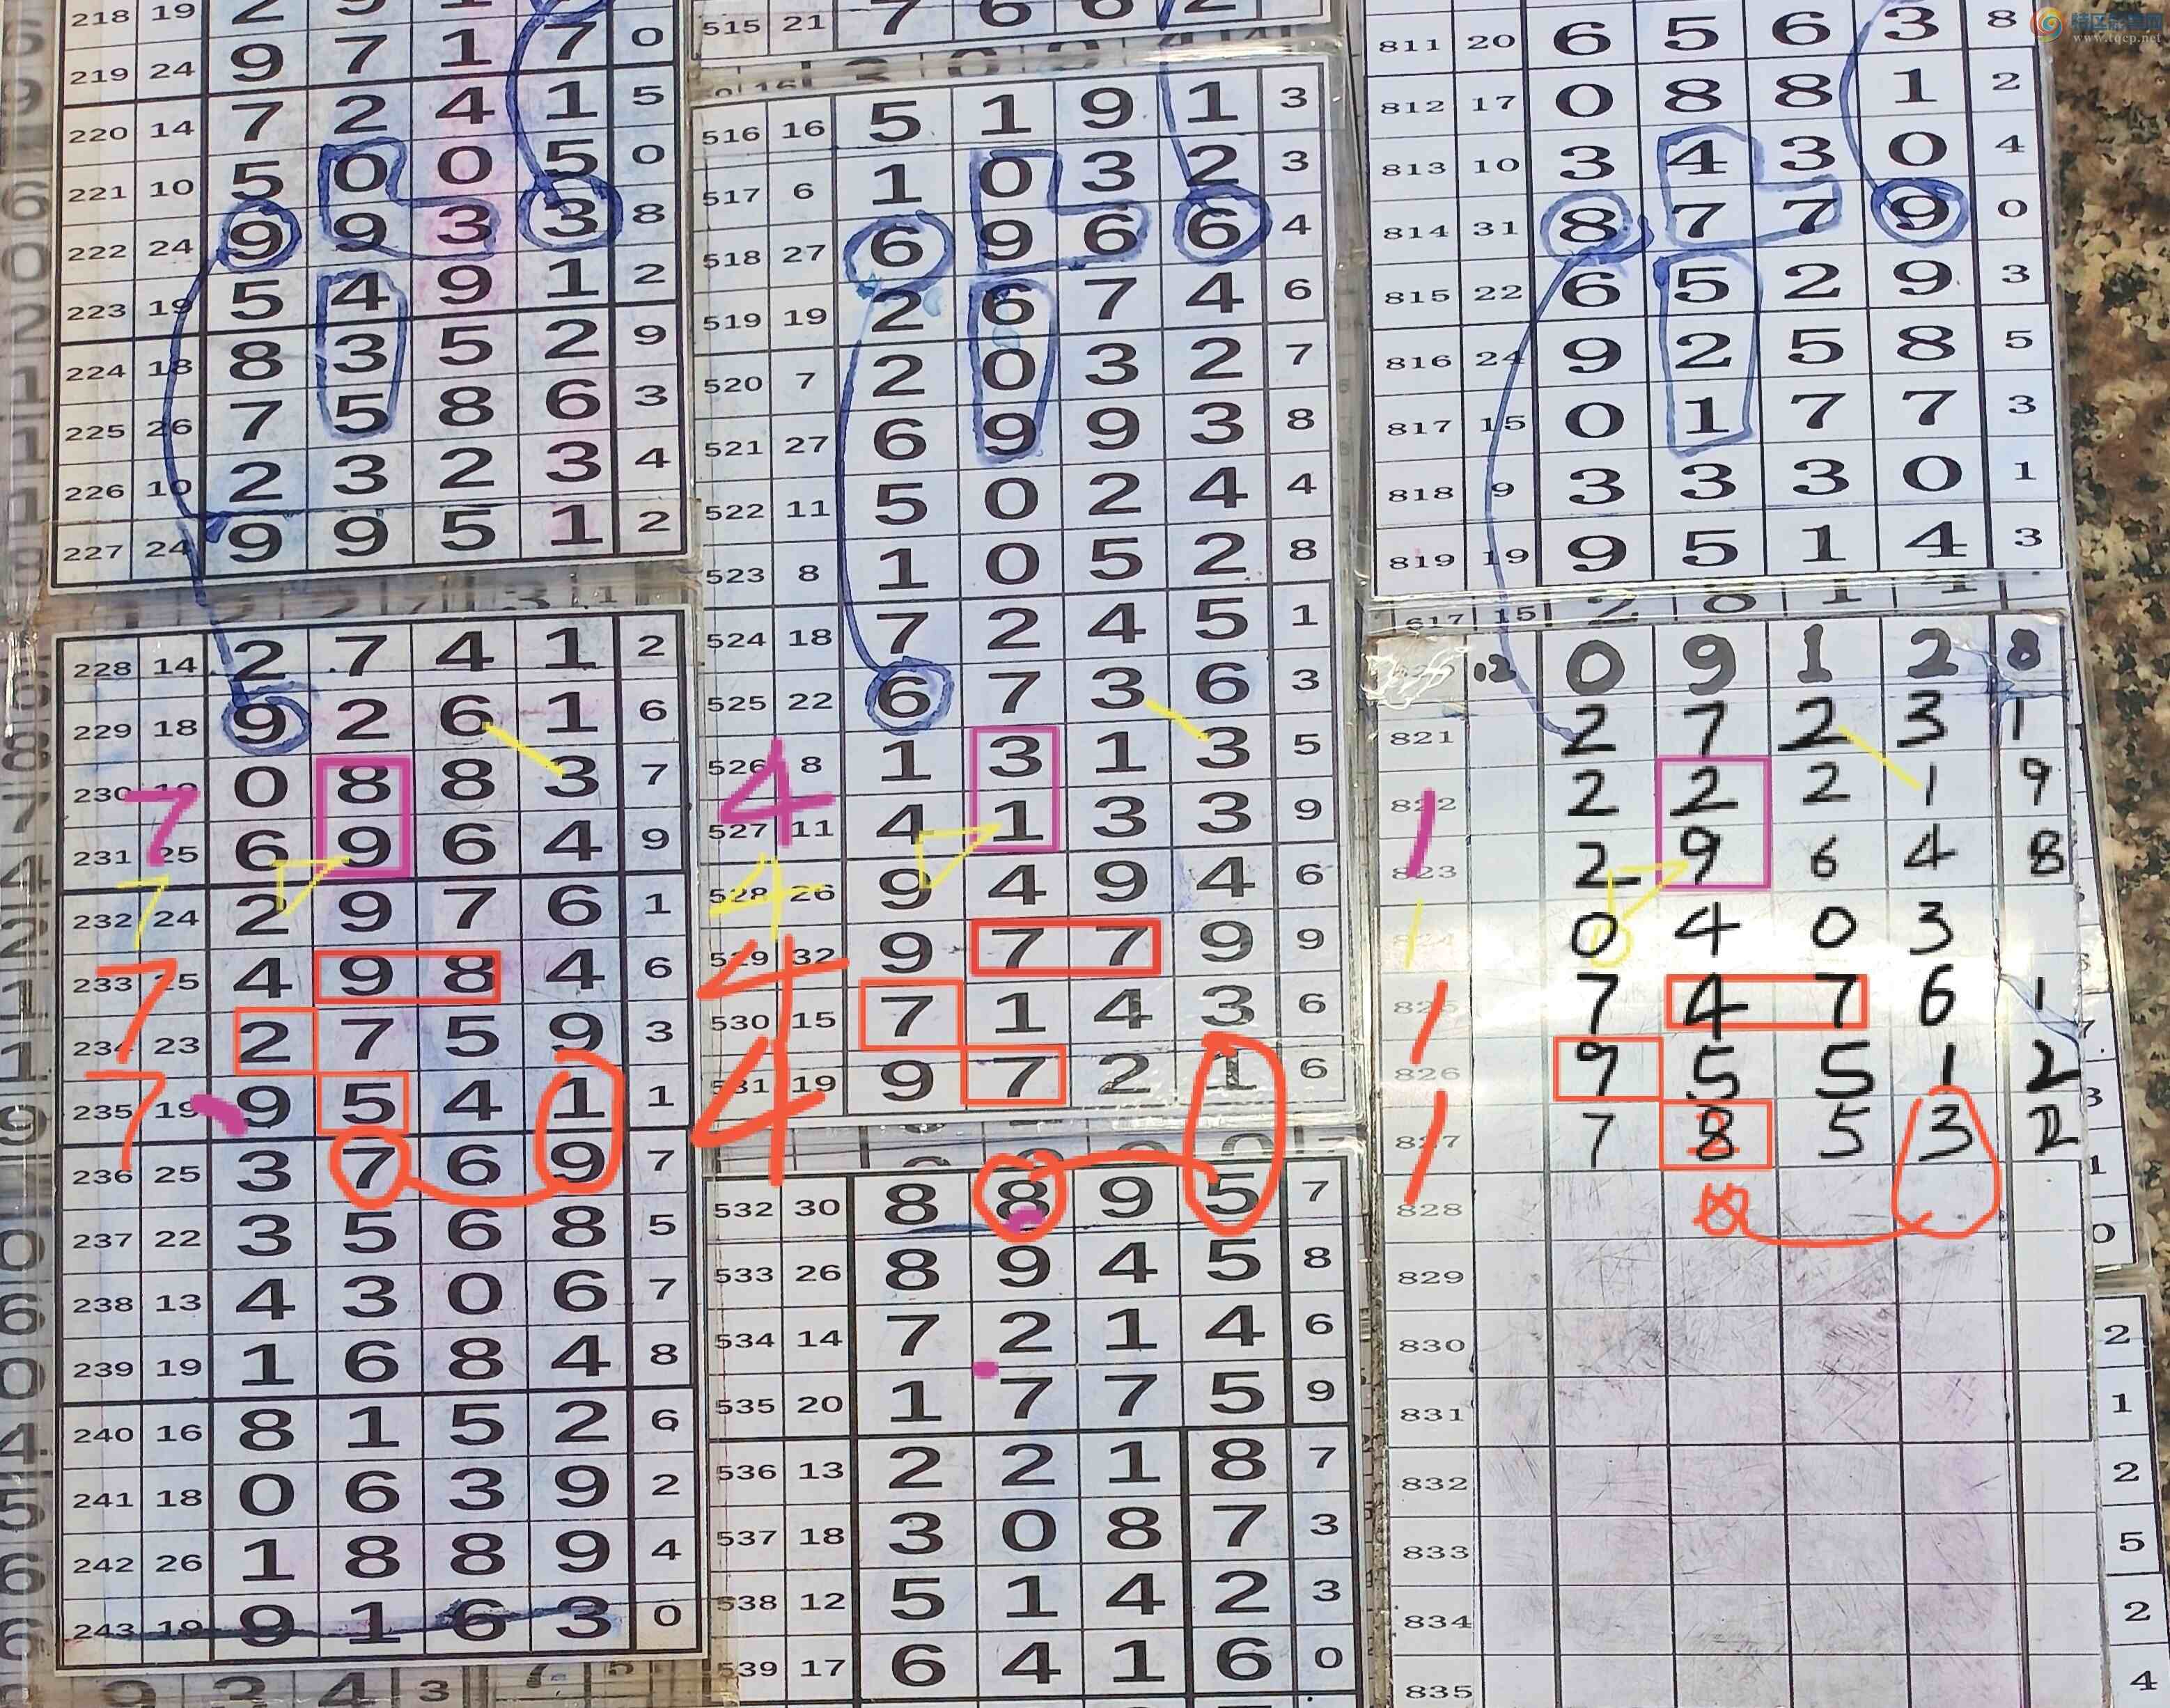 特区彩票网
www.tqcp.net
219 24 9 7 1 7 0
220 14 7 2 4 1 5
221 10 5 0 0 5 0
222 24 9 9 3 3 8
223 19 5 4 9 1 2
224 18 8 3 5 2 9
225 26 7 5 8 6 3
226 10 2 3 2 3 4
227 24 9 9 5 1 2
228 14 2 7 4 1 2
229 18 9 2 6 1 6
230 0 8 8 3 7
7
231 25 6 9 6 4 9
232 24 2 9 7 6 1
7
233 25 4 9 8 4 6
7
234 23 2 7 5 9 3
235 19 9 5 4 1 1
7
236 25 3 7 6 9 7
237 22 3 5 6 8 5
238 13 4 3 0 6 7
239 19 1 6 8 4 8
240 16 8 1 5 2 6
241 18 0 6 3 9 2
242 26 1 8 8 9 4
243 19 9 1 6 3 0
515 21 7 6 6 2
516 16 5 1 9 1 3
517 6 1 0 3 2 3
518 27 6 9 6 6 4
519 19 2 6 7 4 6
520 7 2 0 3 2 7
521 27 6 9 9 3 8
522 11 5 0 2 4 4
523 8 1 0 5 2 8
524 18 7 2 4 5 1
525 22 6 7 3 6 3
526 8 1 3 1 3 5
4
527 11 4 1 3 3 9
528 26 9 4 9 4 6
4
529 32 9 7 7 9 9
4
530 15 7 1 4 3 6
531 19 9 7 2 1 6
4
532 30 8 8 9 5 7
533 26 8 9 4 5 8
534 14 7 2 1 4 6
535 20 1 7 7 5 9
536 13 2 2 1 8 7
537 18 3 0 8 7 3
538 12 5 1 4 2 3
539 17 6 4 1 6 0
811 20 6 5 6 3 8
812 17 0 8 8 1 2
813 10 3 4 3 0 4
814 31 8 7 7 9 0
815 22 6 5 2 9 3
816 24 9 2 5 8 5
817 15 0 1 7 7 3
818 9 3 3 3 0 1
819 19 9 5 1 4 3
617 15
12 0 9 1 2 8
821 2 7 2 3 1
822 2 2 2 1 9
1
823 2 9 6 4 8
824 0 4 0 3
1
825 7 4 7 6 1
1
826 9 5 5 1 2
827 7 8 5 3 2
1
828
829
830
831
832
833
834
835